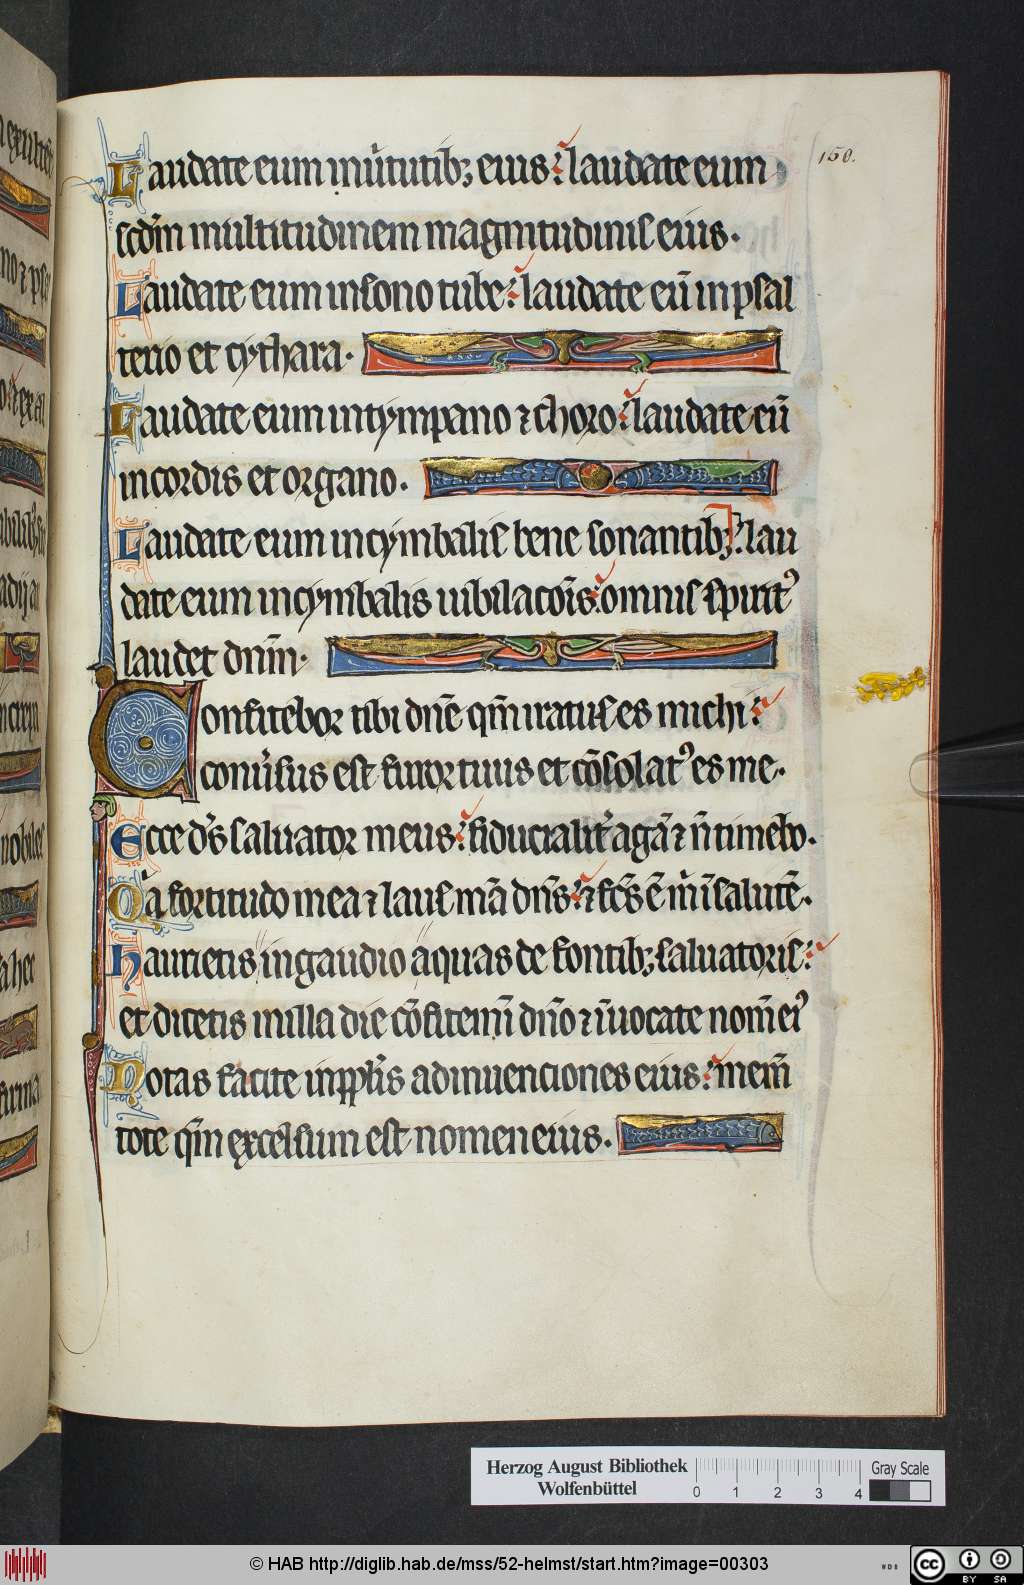 150.
Laudate eum in ũtutibꝫ eius: laudate eum
scdm̄ multitudinem magnitudinis eius.
Laudate eum in sono tube: laudate eũ in psal
terio et cythara.
Laudate eum in tympano ⁊ choro: laudate eũ
in cordis et organo.
Laudate eum in cymbalis bene sonantibꝫ: lau
date eum in cymbalis iubilacõis: omnis spirit᾽
laudet dñm.
Confitebor tibi dñe qm̃ iratus es michi:
conũsus est furor tuus et cõsolat᾽ es me.
Ecce ds̃ saluator meus: fiducialit̃ agã ⁊ ñ timebo.
Q̃a fortitudo mea ⁊ laus mã dñs: ⁊ fcs̃ ẽ m̃ in salutẽ.
Haurietis in gaudio aquas de fontibꝫ saluatoris:
et dicetis in illa die cõfitemĩ dño ⁊ ĩuocate nom̃ ei᾽
Notas facite in pplis̃ adinuenciones eius: mem̃
tote qm̃ excelsum est nomen eius.
Herzog August Bibliothek
Wolfenbüttel
0 1 2 3 4
Gray Scale
© HAB http://diglib.hab.de/mss/52-helmst/start.htm?image=00303
WDB
cc BY SA